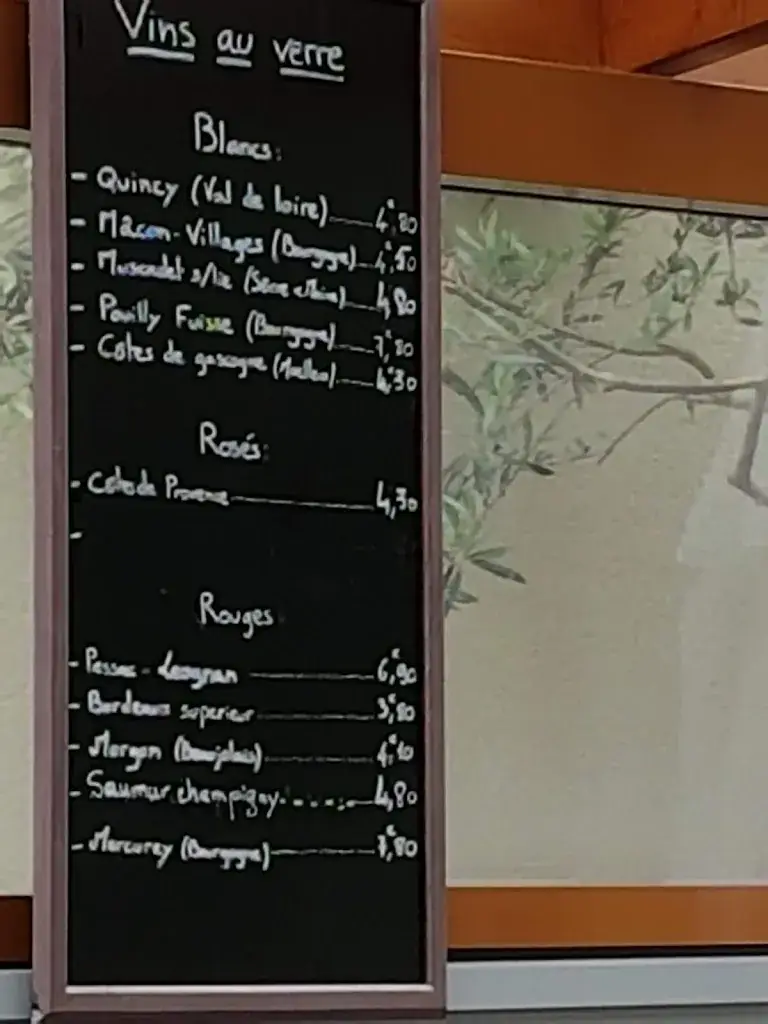 Vins au verre
Blancs:
- Quincy (Val de Loire) 4€,80
- Mâcon-Villages (Bourgogne) 4€,50
- Muscadet s/lie (Sèvre et Maine) 4,80
- Pouilly Fuisse (Bourgogne) 7€,80
- Côtes de gascogne (Moelleux) 4€,30
Rosés:
- Côtes de Provence 4,30
-
Rouges
- Pessac-Leognan 6€,90
- Bordeaux superieur 3€,80
- Morgon (Beaujolais)
- Saumur champigny 4,80
- Mercurey (Bourgogne) 7€,80